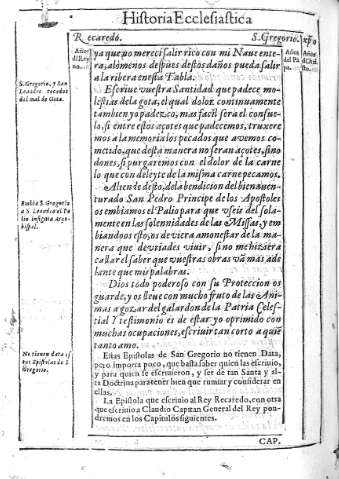 Historia Ecclesiastica
Recaredo.
S. Gregorio.
xpo
Años
del Rey
no.
Años
del Pa
pa.
ya que no merecì salir rico con mi Naue ente-
ra, alomenos despues destos daños pueda salir
a la ribera en esta Tabla.
S. Gregorio, y San
Leandro tocados
del mal de Gota.
Escriue vuestra Santidad que padece mo-
lestias de la gota, el qual dolor continuamente
tambien yo padezco, mas facil serà el consue-
lo, si entre estos açotes que padecemos, traxere
mos a la memoria los pecados que avemos co-
metido, que desta manera no seran açotes, sino
dones, si purgaremos con el dolor de la carne
lo que con deleyte de la misma carne pecamos.
Allende desto, de la bendicion del bienauen-
turado San Pedro Principe de los Apostoles
Embia S. Gregorio
a S. Leandro el Pa
lio insignia Arço-
bispal.
os embiamos el Palio para que vseis del sola-
mente en las solennidades de las Missas, y em
biandoos esto, as devira amonestar de la ma
nera que deviades viuir, sino me hiziera
callar el saber que vuestras obras vã mas ade
lante que mis palabras.
Dios todo poderoso con su Proteccion os
guarde, y os lleue con mucho fruto de las Ani
mas a gozar del galardon de la Patria Celes-
tial Y testimonio es de estar yo oprimido con
muchas ocupaciones, escriuir tan corto a quiẽ
tanto amo.
No tienen data es
tas Epistolas de S
Gregorio.
Estas Epistolas de San Gregorio no tienen Data,
pero importa poco, que basta saber quien las escriuio,
y para quien se escriuieron, y ser de tan Santa y al-
ta Doctrina para tener bien que rumiar y considerar en
ellas.
La Epistola que escriuio al Rey Recaredo, con otra
que escriuio a Claudio Capitan General del Rey pon-
dremos en los Capitulos siguientes.
CAP.